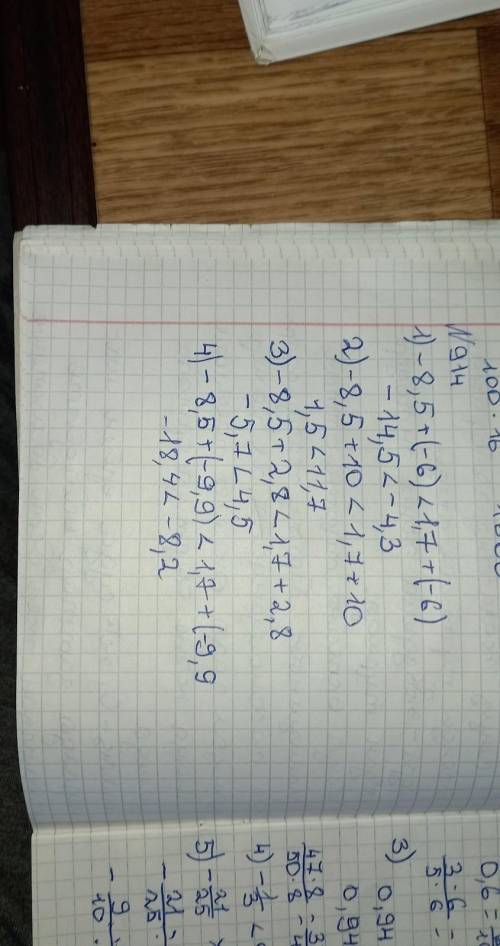 100 · 16
№ 914
1) -8,5+(-6)<1,7+(-6)
-14,5<-4,3
2) -8,5+10<1,7+10
1,5<11,7
3) -8,5+2,8<1,7+2,8
-5,7<4,5
4) -8,5+(-9,9)<1,7+(-9,9
-18,4<-8,2
0,6 =
3·6/5·6 =
3) 0,94
0,94
47·8/50·8 =
4) -1/3 <
5) -21/25
-21/25
-9/10